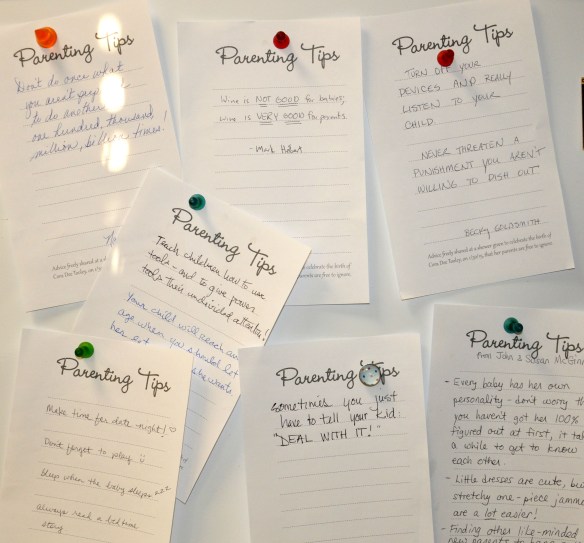 Parenting Tips
Don't do once what
you aren't
to do another
one hundred, thousand,
million, billion times!
Parenting Tips
Wine is NOT GOOD for babies;
Wine is VERY GOOD for parents.
- Mark
celebrate the birth of
parents are five to ignore.
Parenting Tips
TURN OFF YOUR
DEVICES AND REALLY
LISTEN TO YOUR
CHILD.
NEVER THREATEN A
PUNISHMENT YOU AREN'T
WILLING TO DISH OUT
BECKY GOLDSMITH
Advice freely shared at a shower given to celebrate the birth of
that her parents are five to ignore.
Parenting Tips
Teach children how to use
tools - and to give power
tools their undivided attention!
Your child will reach an
age when you should let
her eat
she wants
Parenting Tips
Make time for date night!
Don't forget to play
Sleep when the baby sleeps zzz
always read a bedtime
story
Parenting Tips
sometimes you just
have to tell your kid:
"DEAL WITH IT!"
Parenting Tips
From John & Susan
- Every baby has her own
personality - don't worry th
you haven't got her 100%
figured out at first, it tak
a while to get to know
each other.
- Little dresses are cute, bu
stretchy one-piece jamm
are a lot easier!
- Finding other like-minded
new parents to